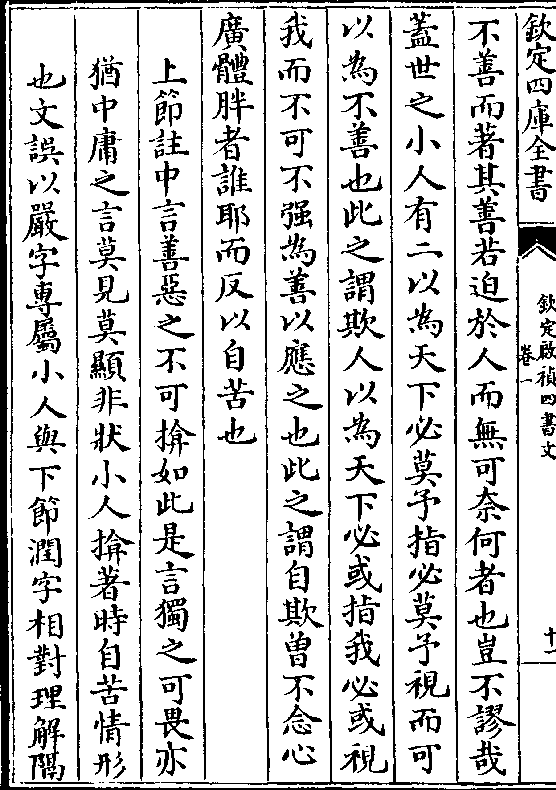 欽定四庫全書
欽定啟禎四書文
卷一
十一
不善而著其善若迫於人而無可奈何者也豈不謬哉
蓋世之小人有二以為天下必莫予指必莫予視而可
以為不善也此之謂欺人以為天下必或指我必或視
我而不可不强為善以應之也此之謂自欺曾不念心
廣體胖者誰耶而反以自苦也
上節註中言善惡之不可揜如此是言獨之可畏亦
猶中庸之言莫見莫顯非狀小人揜著時自苦情形
也文誤以嚴字專屬小人與下節潤字相對理解隔